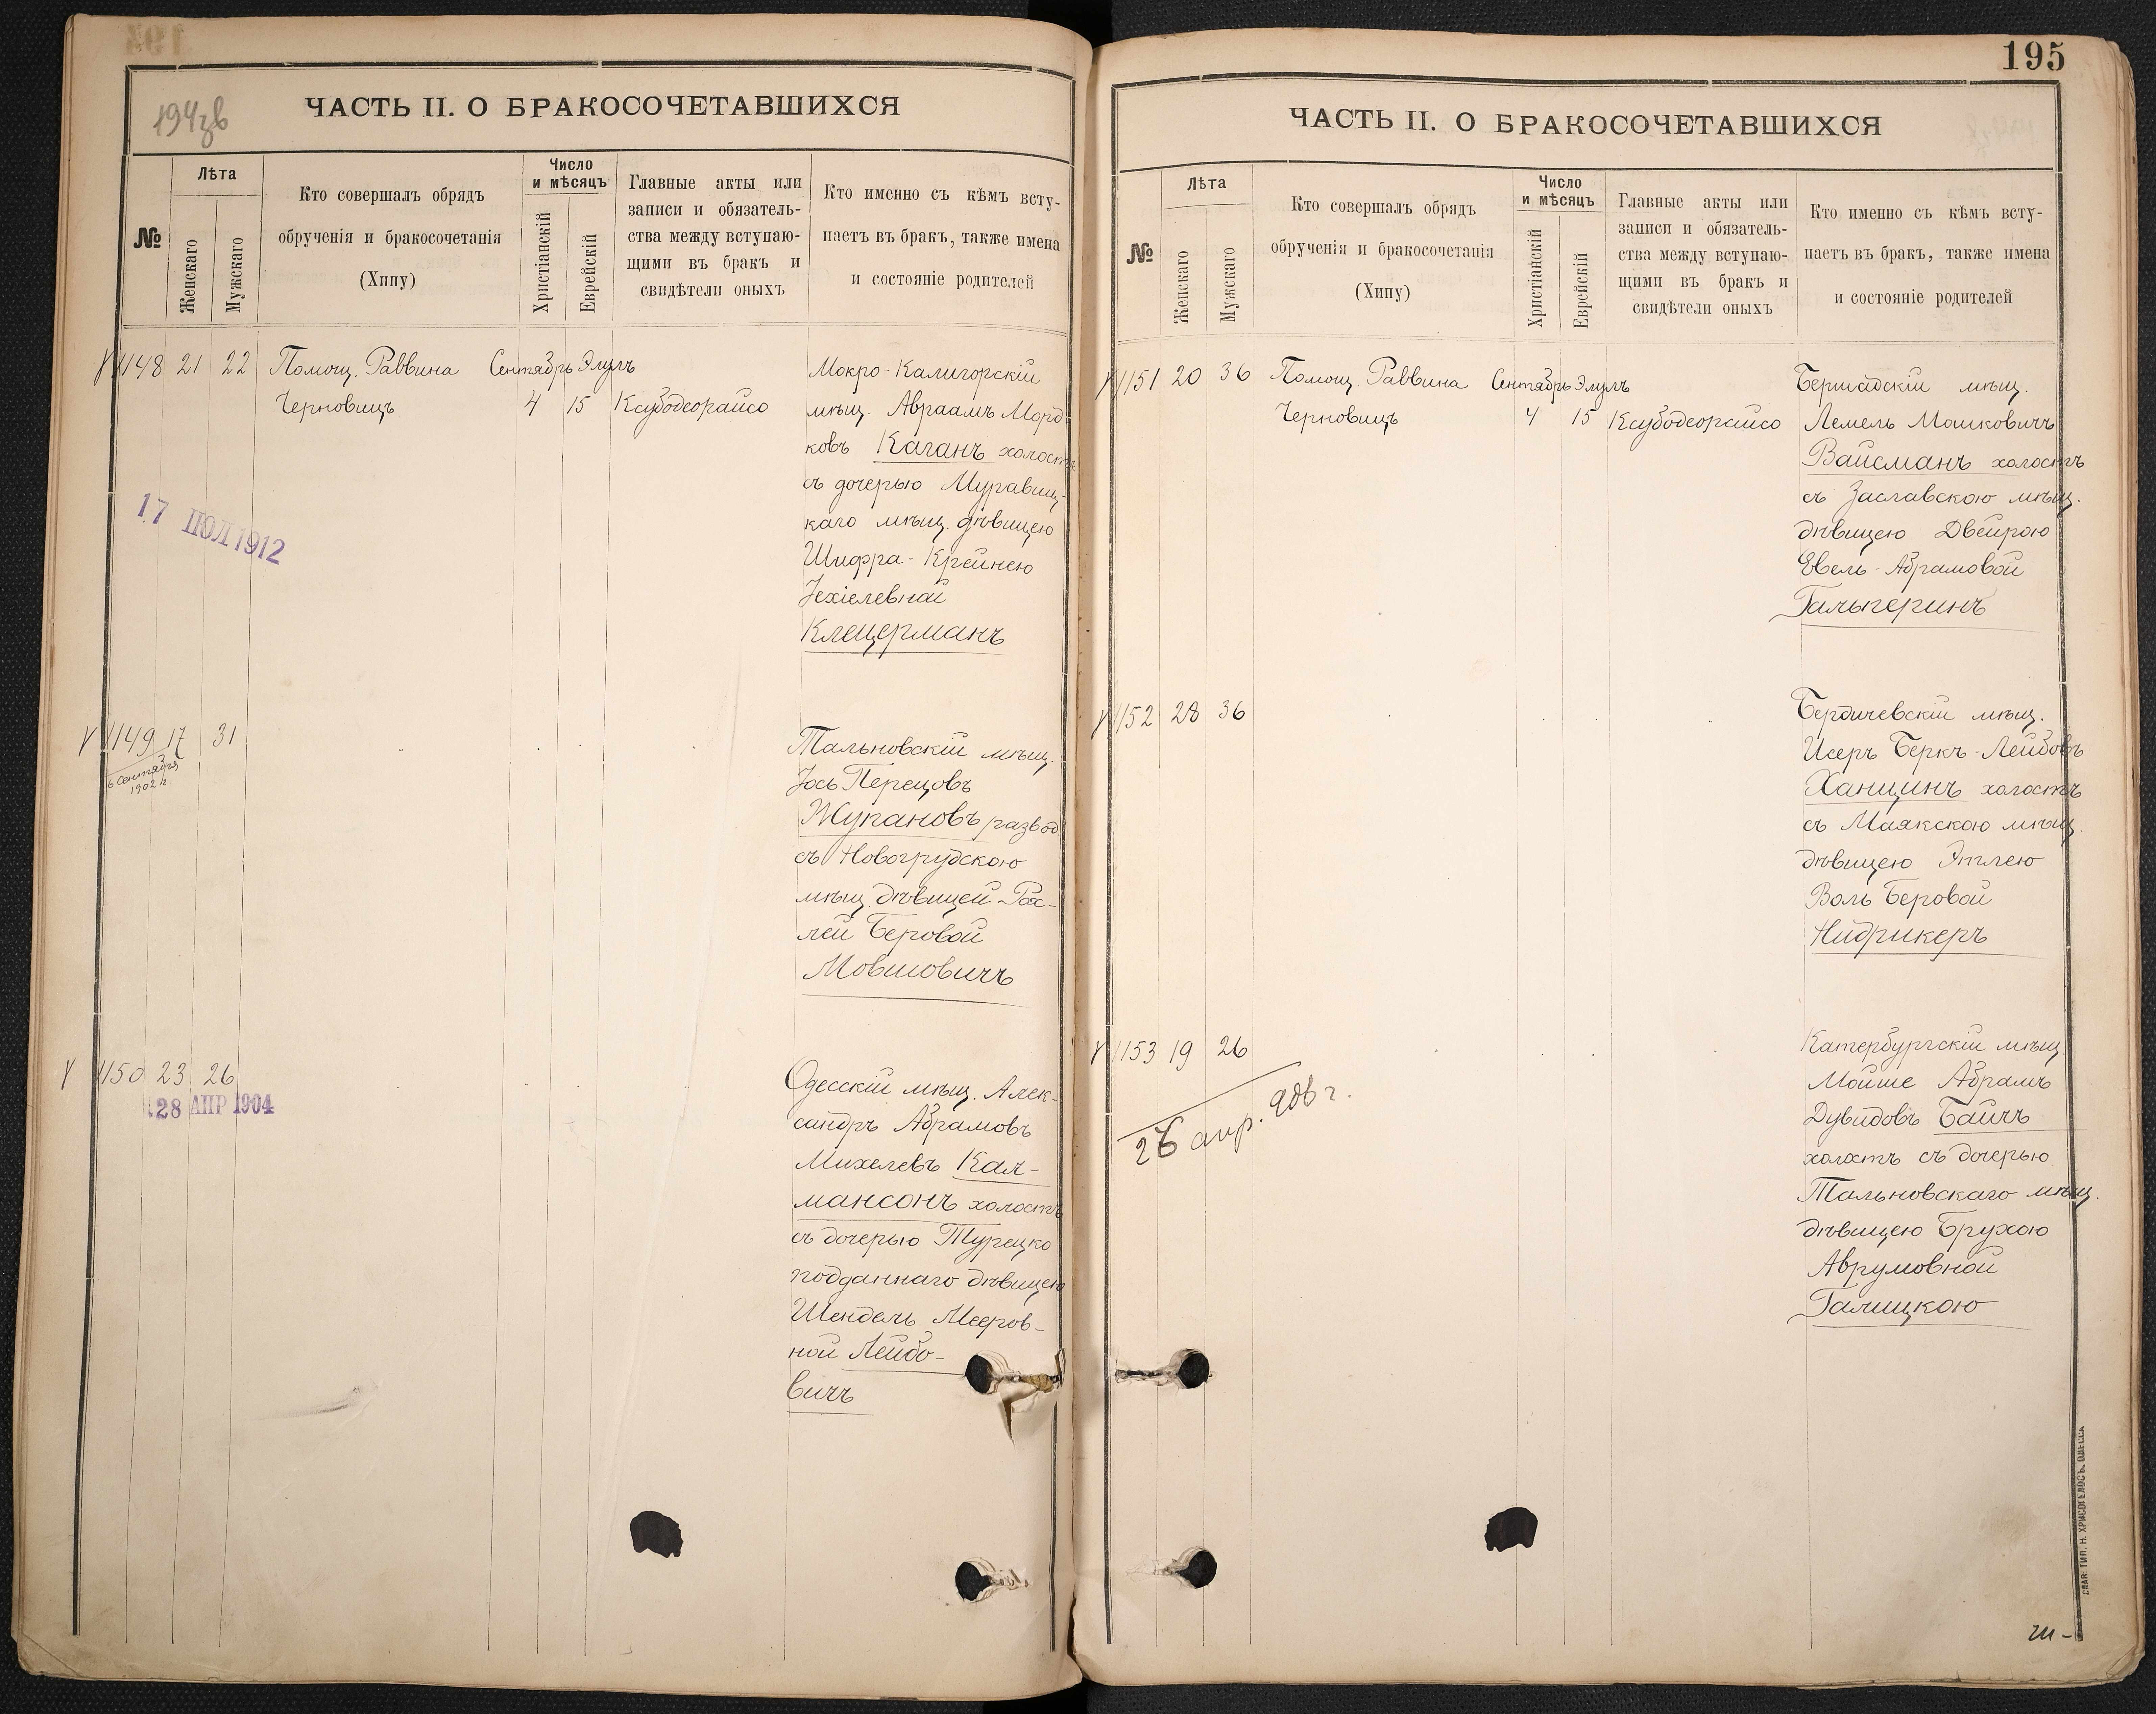 194зв
ЧАСТЬ II. О БРАКОСОЧЕТАВШИХСЯ
№
Лѣта
Женскаго
Мужскаго
Кто совершалъ обрядъ
обрученія и бракосочетанія
(Хипу)
Число
и мѣсяцъ
Христіанскій
Еврейскій
Главные акты или
записи и обязатель-
ства между вступаю-
щими въ бракъ и
свидѣтели оныхъ
Кто именно съ кѣмъ всту-
паетъ въ бракъ, также имена
и состояніе родителей
1148 21 22 Помощ. Раввина Сентябрь Элулъ
Черновицъ 4 15 Ксубодеорайсо
Мокро-Калигорскій
мѣщ. Авраамъ Морд-
ковъ Каганъ холостъ
съ дочерью Муравиц-
каго мѣщ. дѣвицею
Шифра-Крейнею
Іехіелевной
Клецерманъ
17 ІЮЛ 1912
1149 17 31
6 Сентября
1902 г.
Тальновскій мѣщ.
Іось Перецовъ
Жупановъ развод.
съ Новогрудскою
мѣщ. дѣвицей Рах-
лей Беровой
Мовшовичъ
1150 23 26
28 АПР 1904
Одесскій мѣщ. Алек-
сандръ Абрамовъ
Михелевъ Кал-
мансонъ холостъ
съ дочерью Турецко
подданнаго дѣвицею
Шендель Мееров-
ной Лейбо-
вичъ
195
ЧАСТЬ II. О БРАКОСОЧЕТАВШИХСЯ
№
Лѣта
Женскаго
Мужскаго
Кто совершалъ обрядъ
обрученія и бракосочетанія
(Хипу)
Число
и мѣсяцъ
Христіанскій
Еврейскій
Главные акты или
записи и обязатель-
ства между вступаю-
щими въ бракъ и
свидѣтели оныхъ
Кто именно съ кѣмъ всту-
паетъ въ бракъ, также имена
и состояніе родителей
1151 20 36 Помощ. Раввина Сентябрь Элулъ
Черновицъ 4 15 Ксубодеорайсо
Бершадскій мѣщ.
Лемель Мошковичъ
Вайсманъ холостъ
съ Заславскою мѣщ.
дѣвицею Двейрою
Евель-Абрамовой
Гальперинъ
1152 28 36
Бердичевскій мѣщ.
Исеръ Беркъ-Лейбовъ
Ханцинъ холостъ
съ Маякскою мѣщ.
дѣвицею Этлею
Воль Беровой
Нидрикеръ
1153 19 26
26 апр. 906 г.
Катербургскій мѣщ.
Мойше Абрамъ
Дувидовъ Байчъ
холостъ съ дочерью
Тальновскаго мѣщ.
дѣвицею Брухою
Аврумовной
Галицкою
СЛАВ. ТИП. Н. ХРИСОГЕЛОСЪ. ОДЕССА